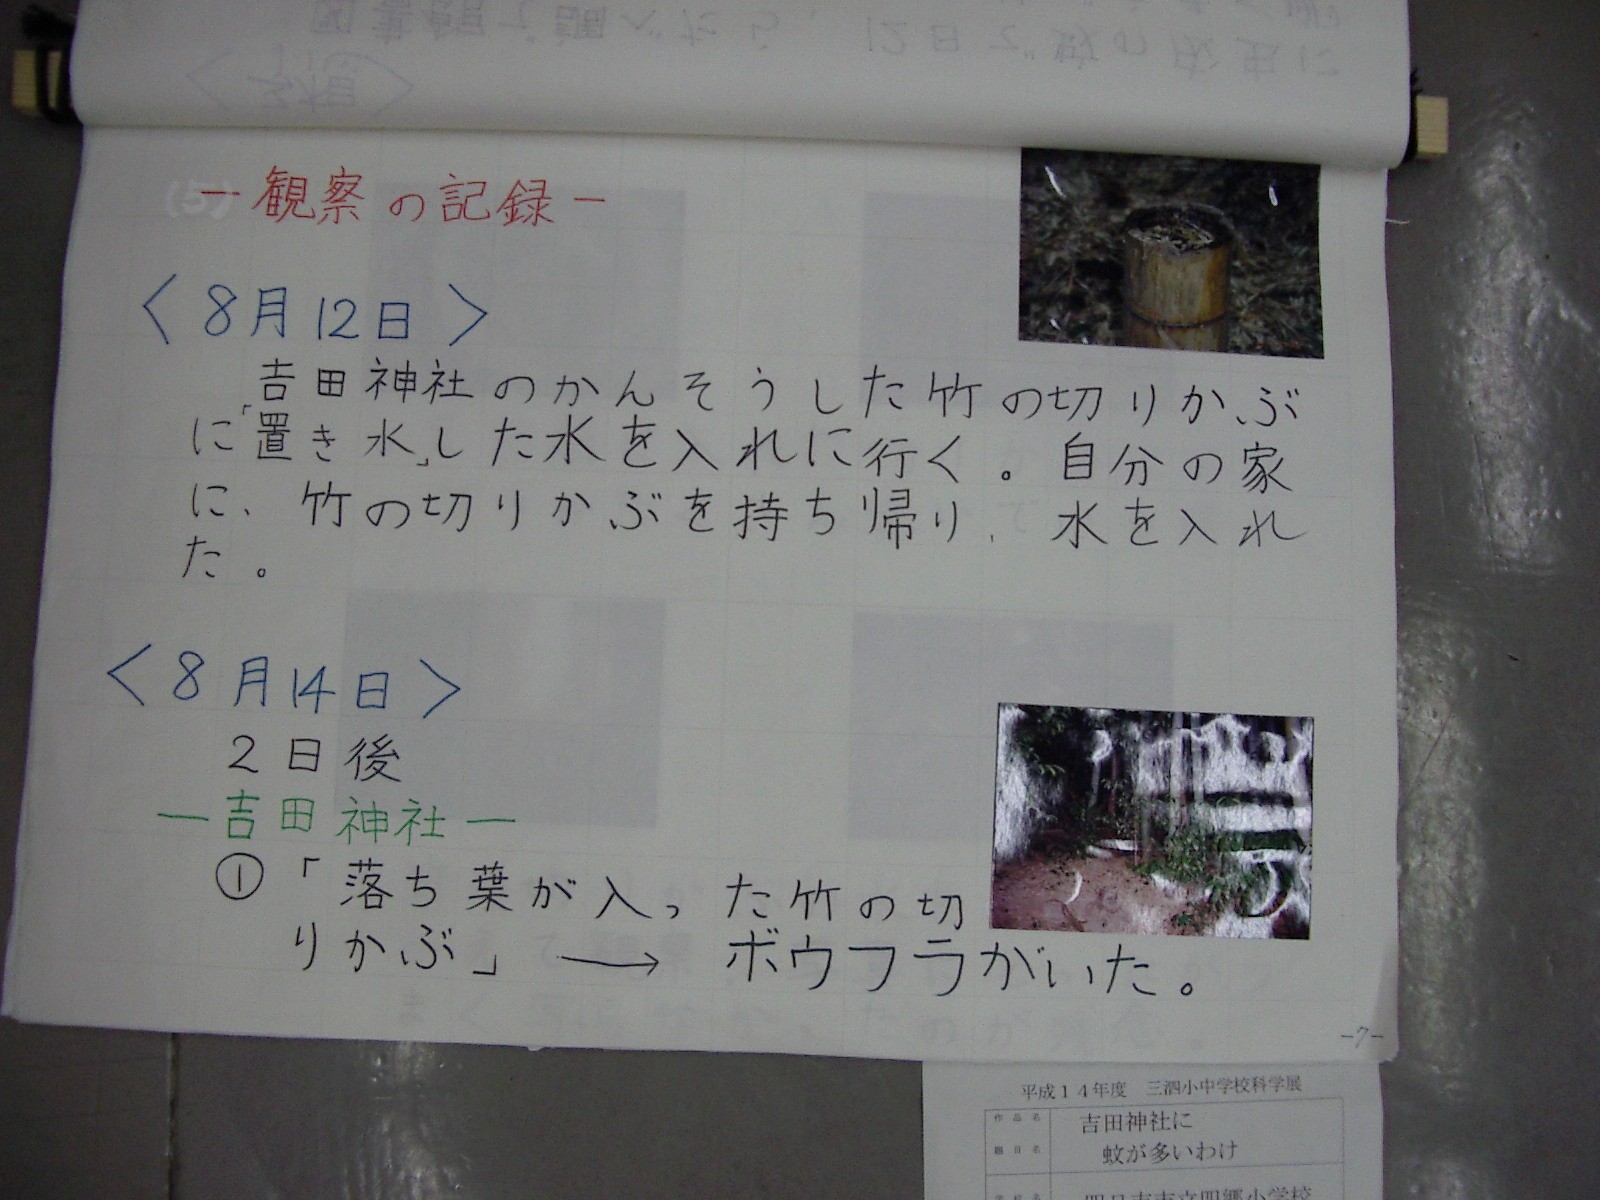 ー観察の記録ー
〈8月12日〉
吉田神社のかんそうした竹の切りかぶ
に「置き水」した水を入れに行く。自分の家
に、竹の切りかぶを持ち帰り、水を入れ
た。
〈8月14日〉
2日後
ー吉田神社ー
①「落ち葉が入った竹の切
りかぶ」→ボウフラがいた。
-7-
平成14年度 三泗小中学校科学展
作品名
題目名
吉田神社に
蚊が多いわけ
四日市市立四郷小学校